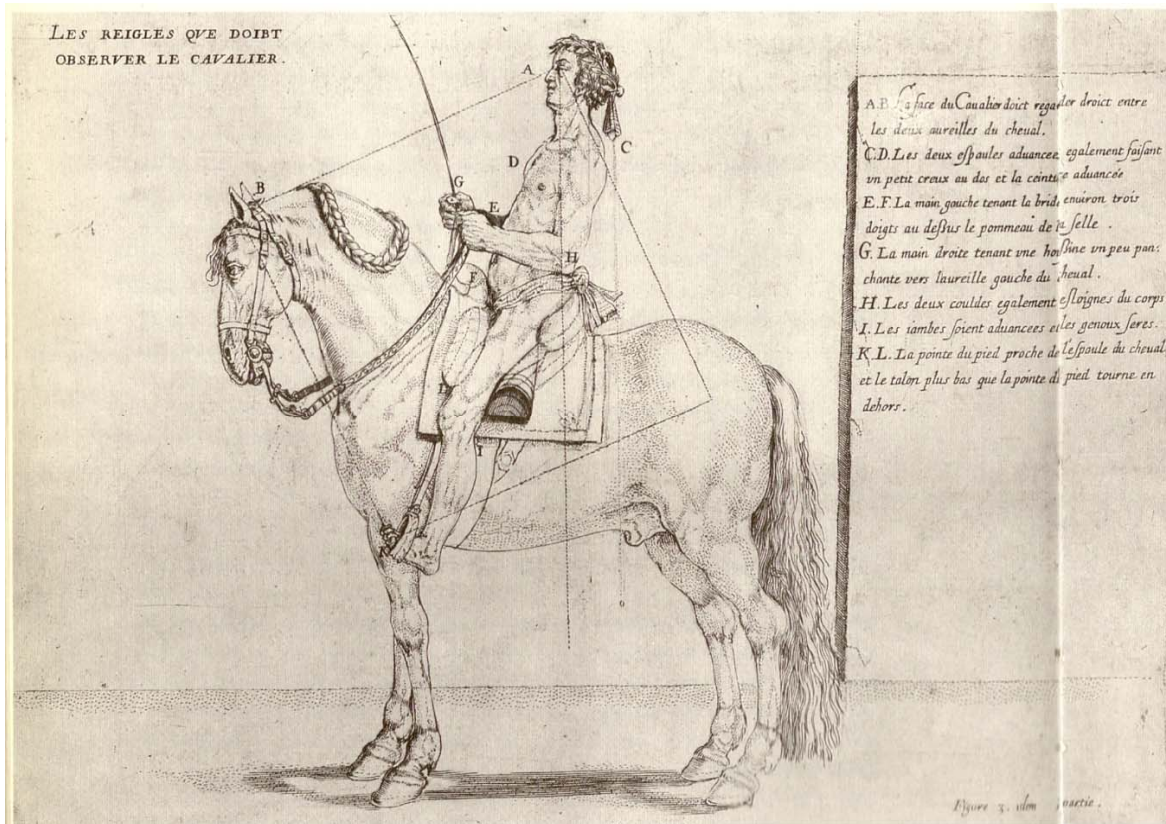 LES REIGLES QVE DOIBT
OBSERVER LE CAVALIER.
A
B
C
D
E
F
G
H
I
A.B. La face du Caualier doict regarder droict entre
les deux aureilles du cheual.
C.D. Les deux eſpaules aduancee egalement faiſant
vn petit creux au dos et la ceinture aduancée
E.F. La main gauche tenant la bride enuiron trois
doigts au deſſus le pommeau de la ſelle.
G. La main droite tenant vne houſſine vn peu pan:
chante vers laureille gauche du cheual.
H. Les deux couldes egalement eſloignes du corps
I. Les iambes ſoient aduancees et les genoux ſeres.
K.L. La pointe du pied proche de l'eſpoule du cheual
et le talon plus bas que la pointe du pied tourne en
dehors.
Figure 3. partie.